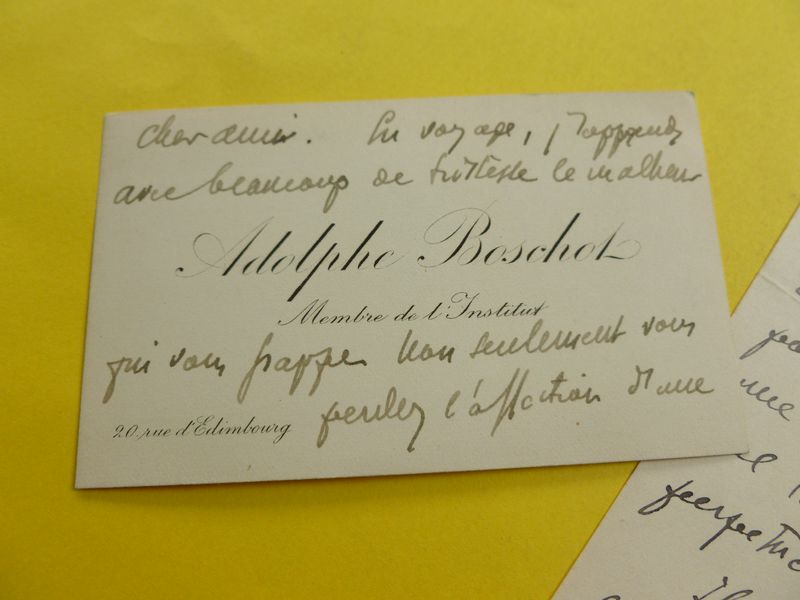 cher ami. En voyage, j'apprends
avec beaucoup de tristesse le malheur
Adolphe Boschot
Membre de l'Institut
qui vous frappe. Non seulement vous
perdez l'affection d'une
20. rue d'Edimbourg
me
perpétue